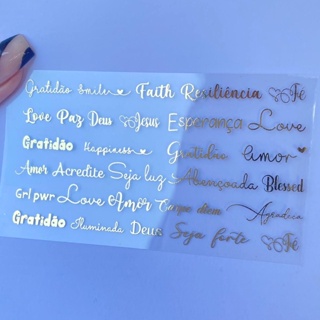 Gratidão Smile Faith Resiliência Fé
Love Paz Deus Jesus Esperança Love
Gratidão Happiness Gratidão Amor
Amor Acredite Seja luz Abençoada Blessed
Grl pwr Love Amor Carpe diem Agradeça
Gratidão Iluminada Deus Seja forte Fé